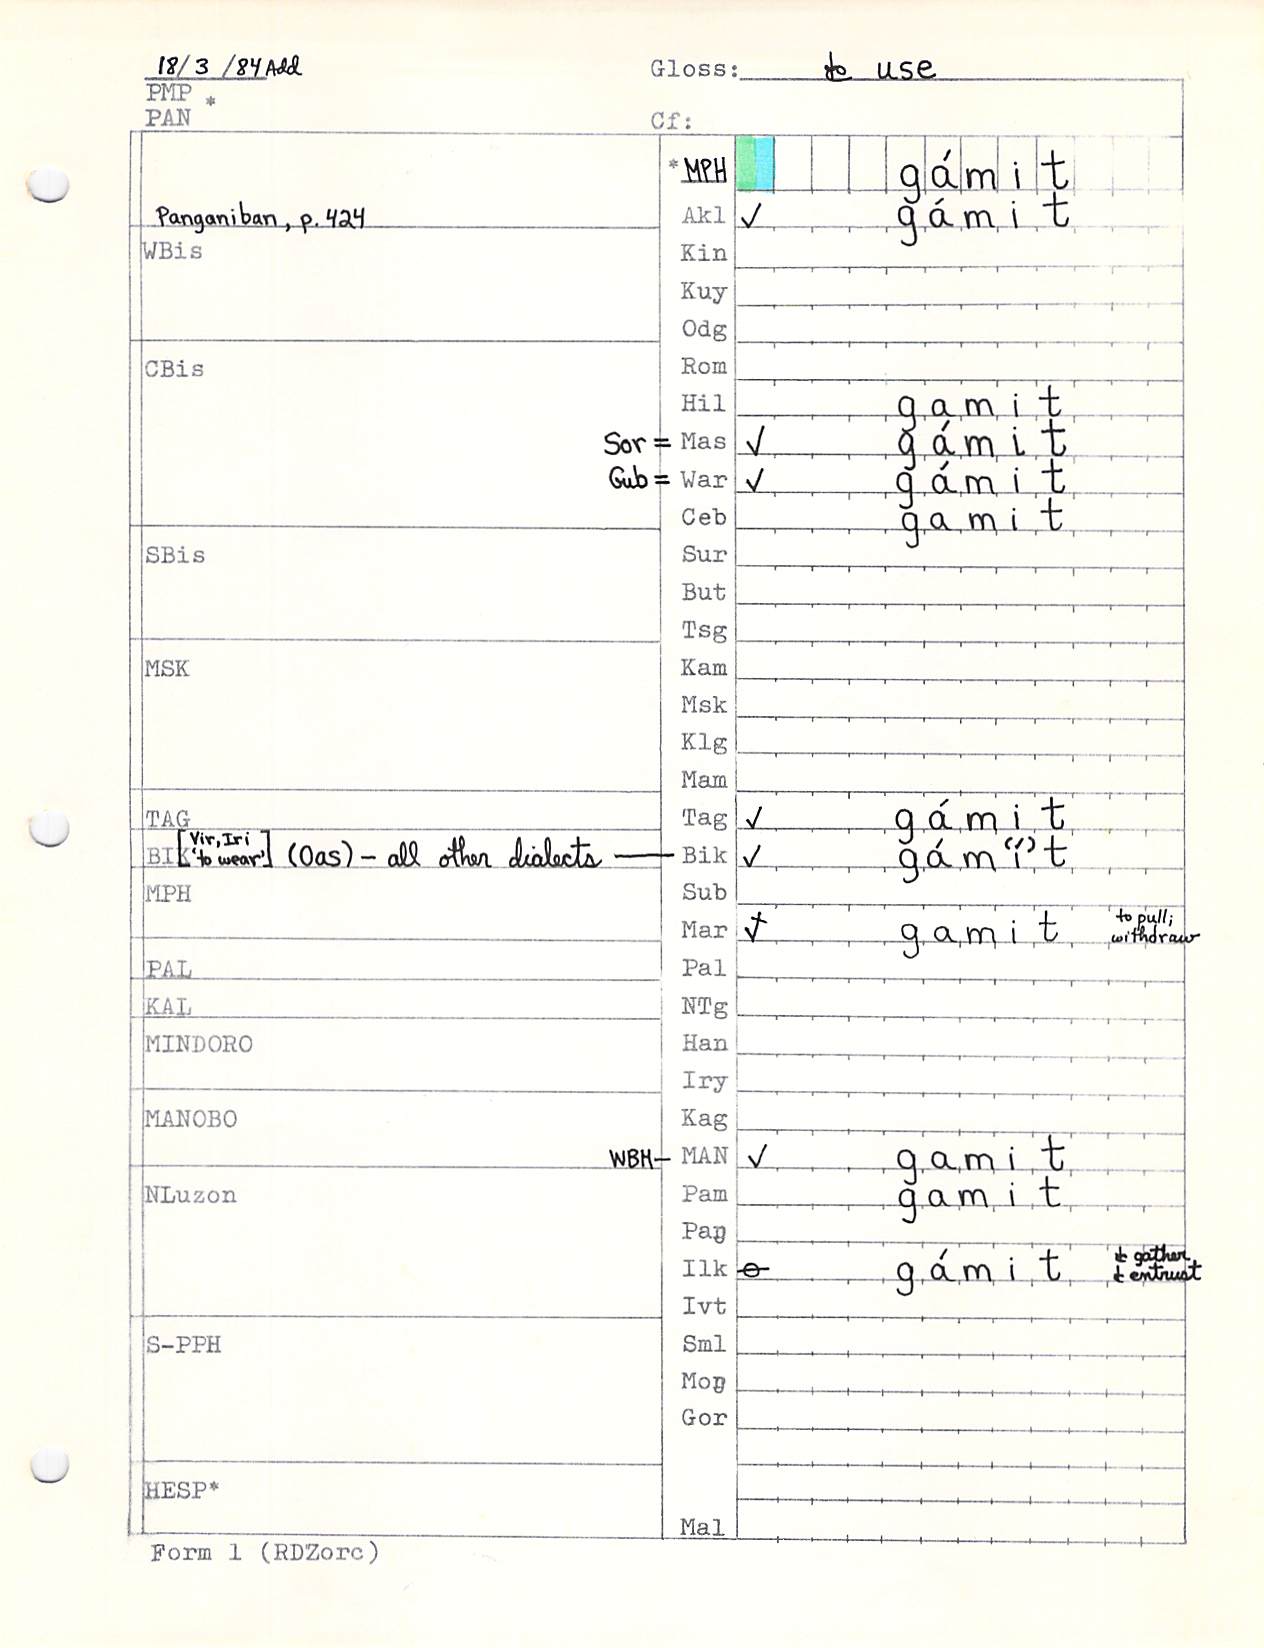 18/3/84 Add Gloss: to use
PMP *
PAN Cf:
*MPH gámit
Panganiban, p. 424 Akl ✓ gámit
WBis Kin
Kuy
Odg
CBis Rom
Hil gamit
Sor = Mas ✓ gámit
Gub = War ✓ gámit
Ceb gamit
SBis Sur
But
Tsg
MSK Kam
Msk
Klg
Mam
TAG Tag ✓ gámit
BIK [Vir, Iri 'to wear'] (Oas) – all other dialects — Bik ✓ gám(í)t
MPH Sub
Mar gamit to pull; withdraw
PAL Pal
KAL NTg
MINDORO Han
Iry
MANOBO Kag
WBM – MAN ✓ gamit
NLuzon Pam gamit
Paŋ
Ilk gámit to gather to entrust
Ivt
S-PPH Sml
Moŋ
Gor
HESP*
Mal
Form 1 (RDZorc)